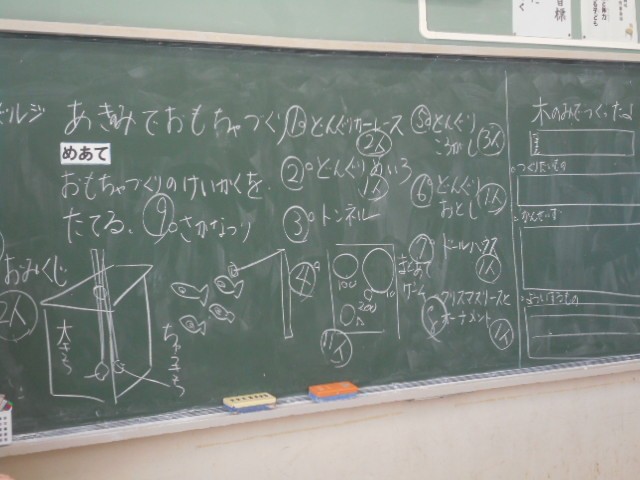 あきみでおもちゃづくり
めあて
おもちゃづくりのけいかくを
たてる。
⑨さかなつり
おみくじ
2人
大きち
ちゅうきち
①どんぐりカーレース
2人
②どんぐりめいろ
1人
③トンネル
④
まとあて
ゲーム
100
10
200
11人
⑤どんぐり
ころがし
3人
⑥どんぐり
おとし
1人
⑦ドールハウス
1人
⑧クリスマスリースと
オーナメント
1人
木のみでつくったよ
つくりたいもの
かんせいず
よういするもの